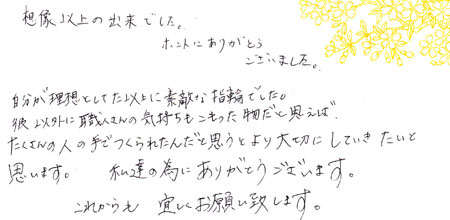 想像以上の出来でした。
ホントにありがとう
ございました。
自分が理想としてた以上に素敵な指輪でした。
彼以外に職人さんの気持ちもこもった物だと思えば、
たくさんの人の手でつくられたんだと思うとより大切にしていきたいと
思います。 私達の為にありがとうございます。
これからも 宜しくお願い致します。